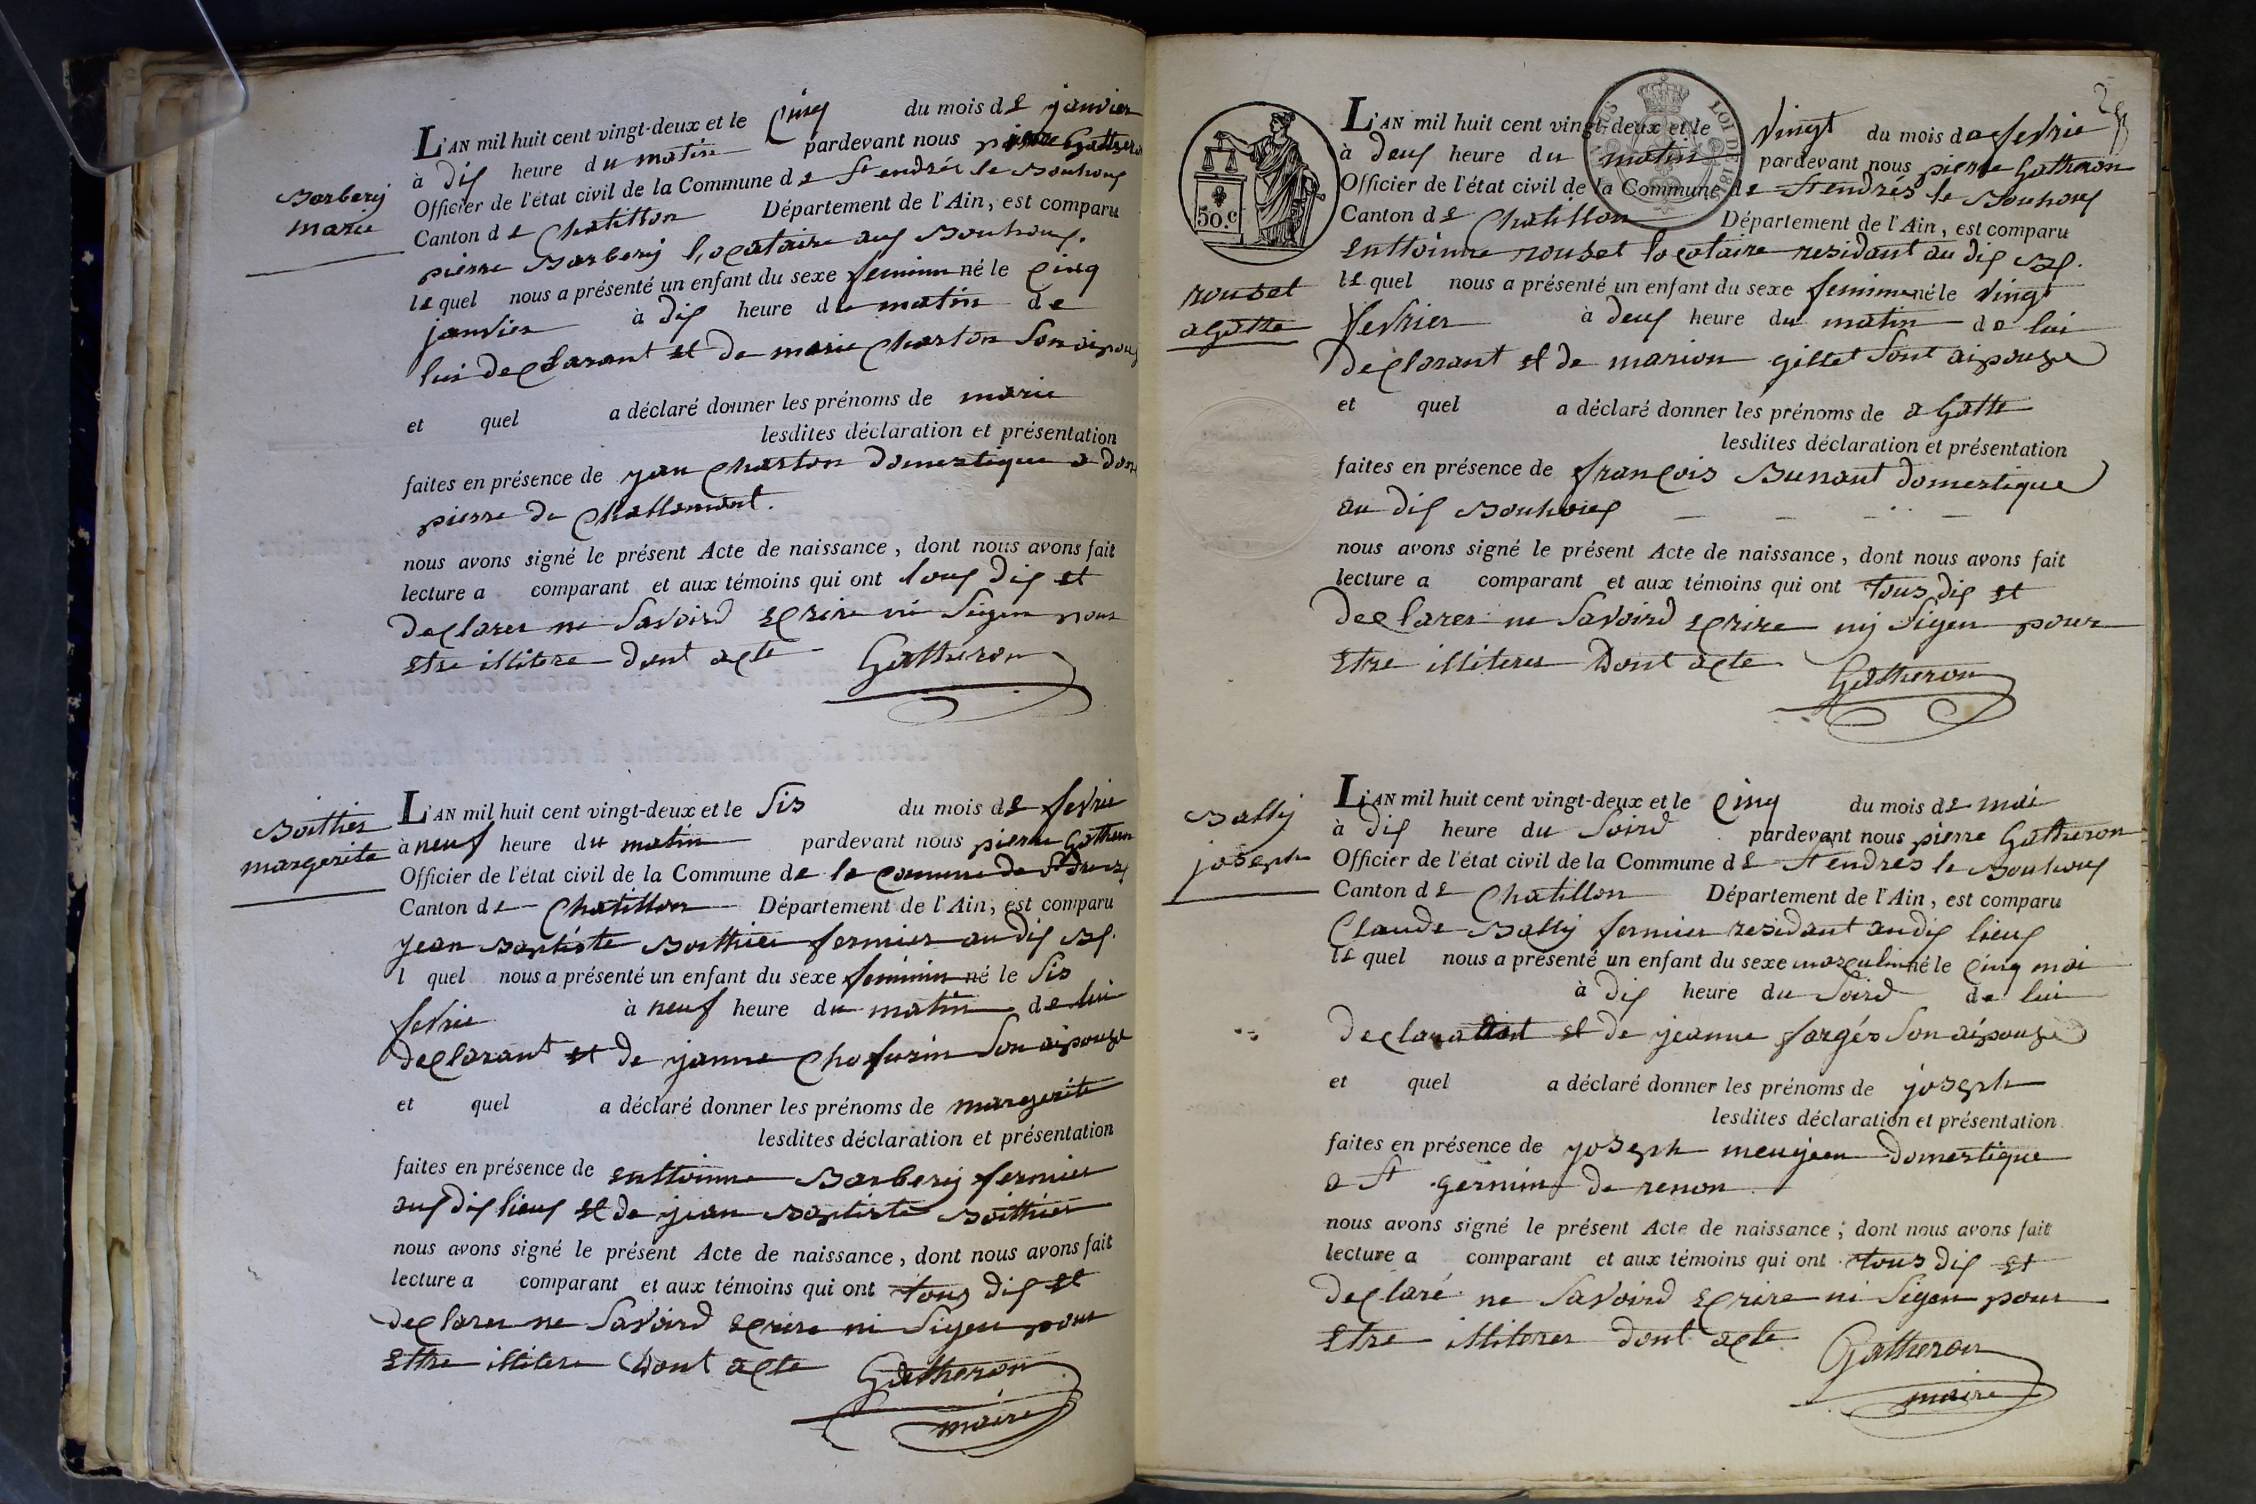 Barberÿ
marie
L'AN mil huit cent vingt-deux et le Cinq du mois de janvier
à dix heure du matin pardevant nous pierre Gatheron
Officier de l'état civil de la Commune de St endrés le Bouhoux
Canton de Chatillon Département de l'Ain, est comparu
pierre Barberÿ locataire aux Bouhoux.
le quel nous a présenté un enfant du sexe feminin né le Cinq
janvier à dix heure du matin de
lui declarant et de marie Charton Son aipouz
et quel a déclaré donner les prénoms de marie
lesdites déclaration et présentation
faites en présence de jean Charton domestique a dom
pierre de Challamont.
nous avons signé le présent Acte de naissance, dont nous avons fait
lecture a comparant et aux témoins qui ont tous dis et
declarer ne Savoird ecrire ni Signer pour
etre illitere dont acte Gatheron
Boithier
margerite
L'AN mil huit cent vingt-deux et le Sis du mois de fevrie
à neuf heure du matin pardevant nous pierre Gatheron
Officier de l'état civil de la Commune de la Comune de St
Canton de Chatillon Département de l'Ain, est comparu
jean Baptiste Boithier fermier au dis Bx.
l quel nous a présenté un enfant du sexe feminin né le Sis
fevrie à neuf heure du matin de lui
declarant et de janne Chofurin Son aipouze
et quel a déclaré donner les prénoms de margerite
lesdites déclaration et présentation
faites en présence de enttoinne Barberÿ fermier
aux dis lieux et de jean Baptiste Boithier
nous avons signé le présent Acte de naissance, dont nous avons fait
lecture a comparant et aux témoins qui ont tous dis et
declarer ne Savoird ecrire ni Signer pour
ettre illitere dont acte Gatheron
maire
50.c
LOI DE 181
rouset
agatte
L'AN mil huit cent vingt-deux et le Vingt du mois de fevrie
à deux heure du matin pardevant nous pierre Gatheron
Officier de l'état civil de la Commune de St endrés le Bouhoux
Canton de Chatillon Département de l'Ain, est comparu
enttoinne rouset locataire residant au dis Bx.
le quel nous a présenté un enfant du sexe feminin né le Vingt
fevrier à deux heure du matin de lui
declarant et de marion gillet Sont aipouze
et quel a déclaré donner les prénoms de agatte
lesdites déclaration et présentation
faites en présence de françois Bunant domestique
au dis Bouhoux
nous avons signé le présent Acte de naissance, dont nous avons fait
lecture a comparant et aux témoins qui ont tous dis et
declarer ne Savoird ecrire nÿ Signer pour
etre illiterer dont acte Gatheron
Ballÿ
joseph
L'AN mil huit cent vingt-deux et le Cinq du mois de mai
à dix heure du Soird pardevant nous pierre Gatheron
Officier de l'état civil de la Commune de St endrés le Bouhoux
Canton de Chatillon Département de l'Ain, est comparu
Claude Ballÿ fermier residant audis lieux
le quel nous a présenté un enfant du sexe masculin né le Cinq mai
à dix heure du Soird de lui
declarant et de jeanne fargés Son aipouze
et quel a déclaré donner les prénoms de joseph
lesdites déclaration et présentation
faites en présence de joseph meujeen domestique
a St germint de renon
nous avons signé le présent Acte de naissance; dont nous avons fait
lecture a comparant et aux témoins qui ont tous dis et
declaré ne Savoird ecrire ni Signer pour
etre illiterer dont acte Gatheron
maire